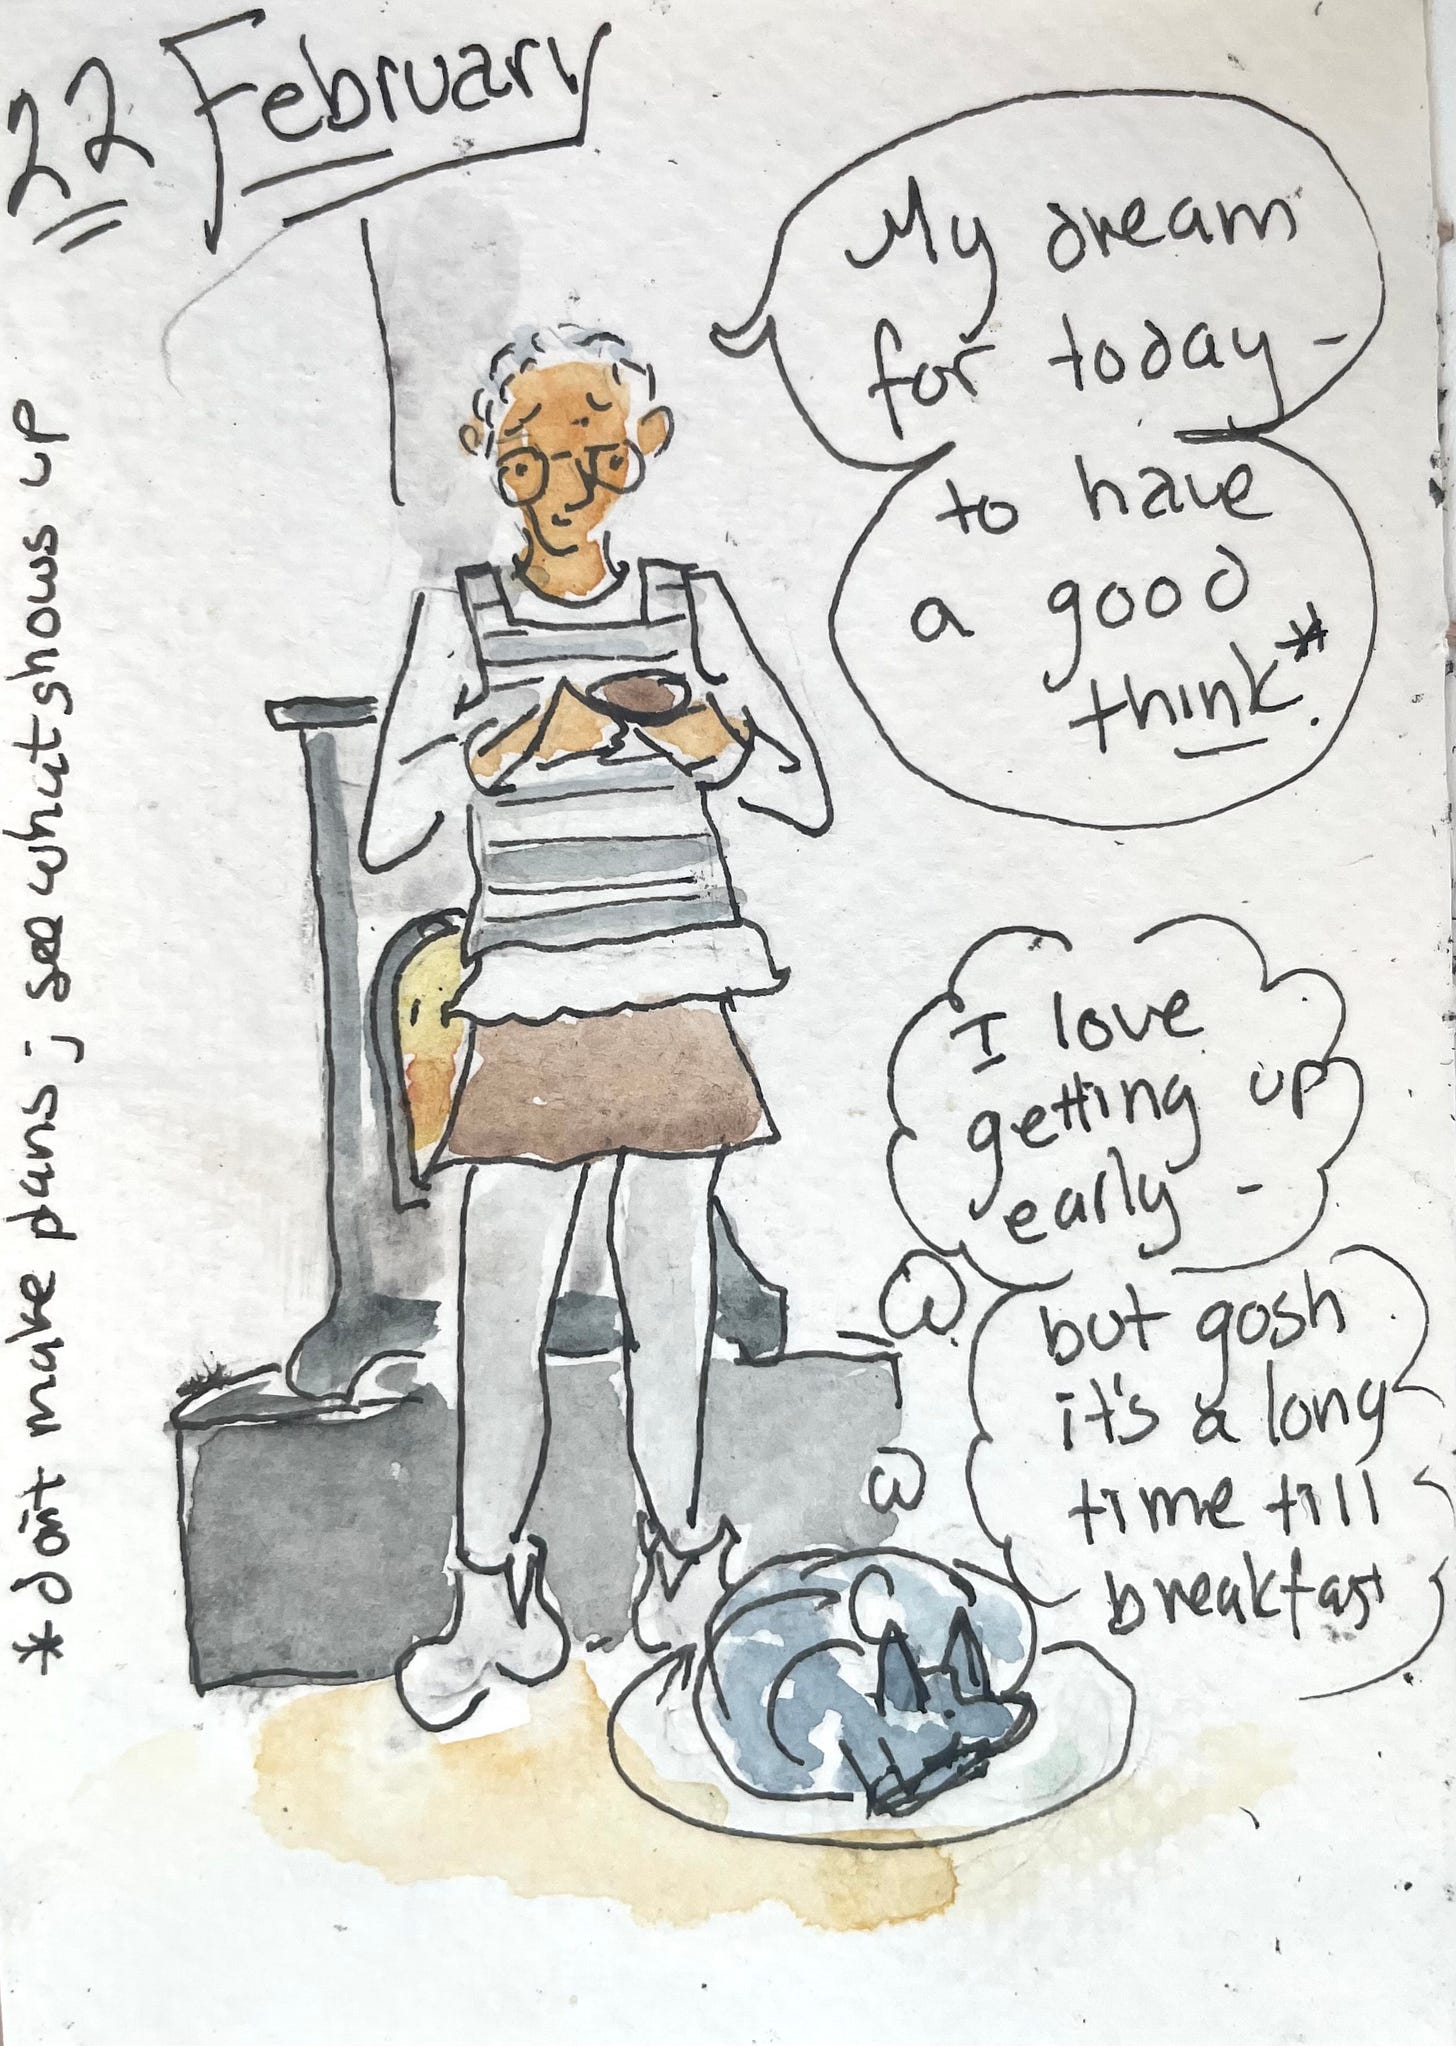 22 February
My dream
for today -
to have
a good
think*.
I love
getting up
early -
but gosh
it's a long
time till
breakfast
*don't make plans; see what shows up